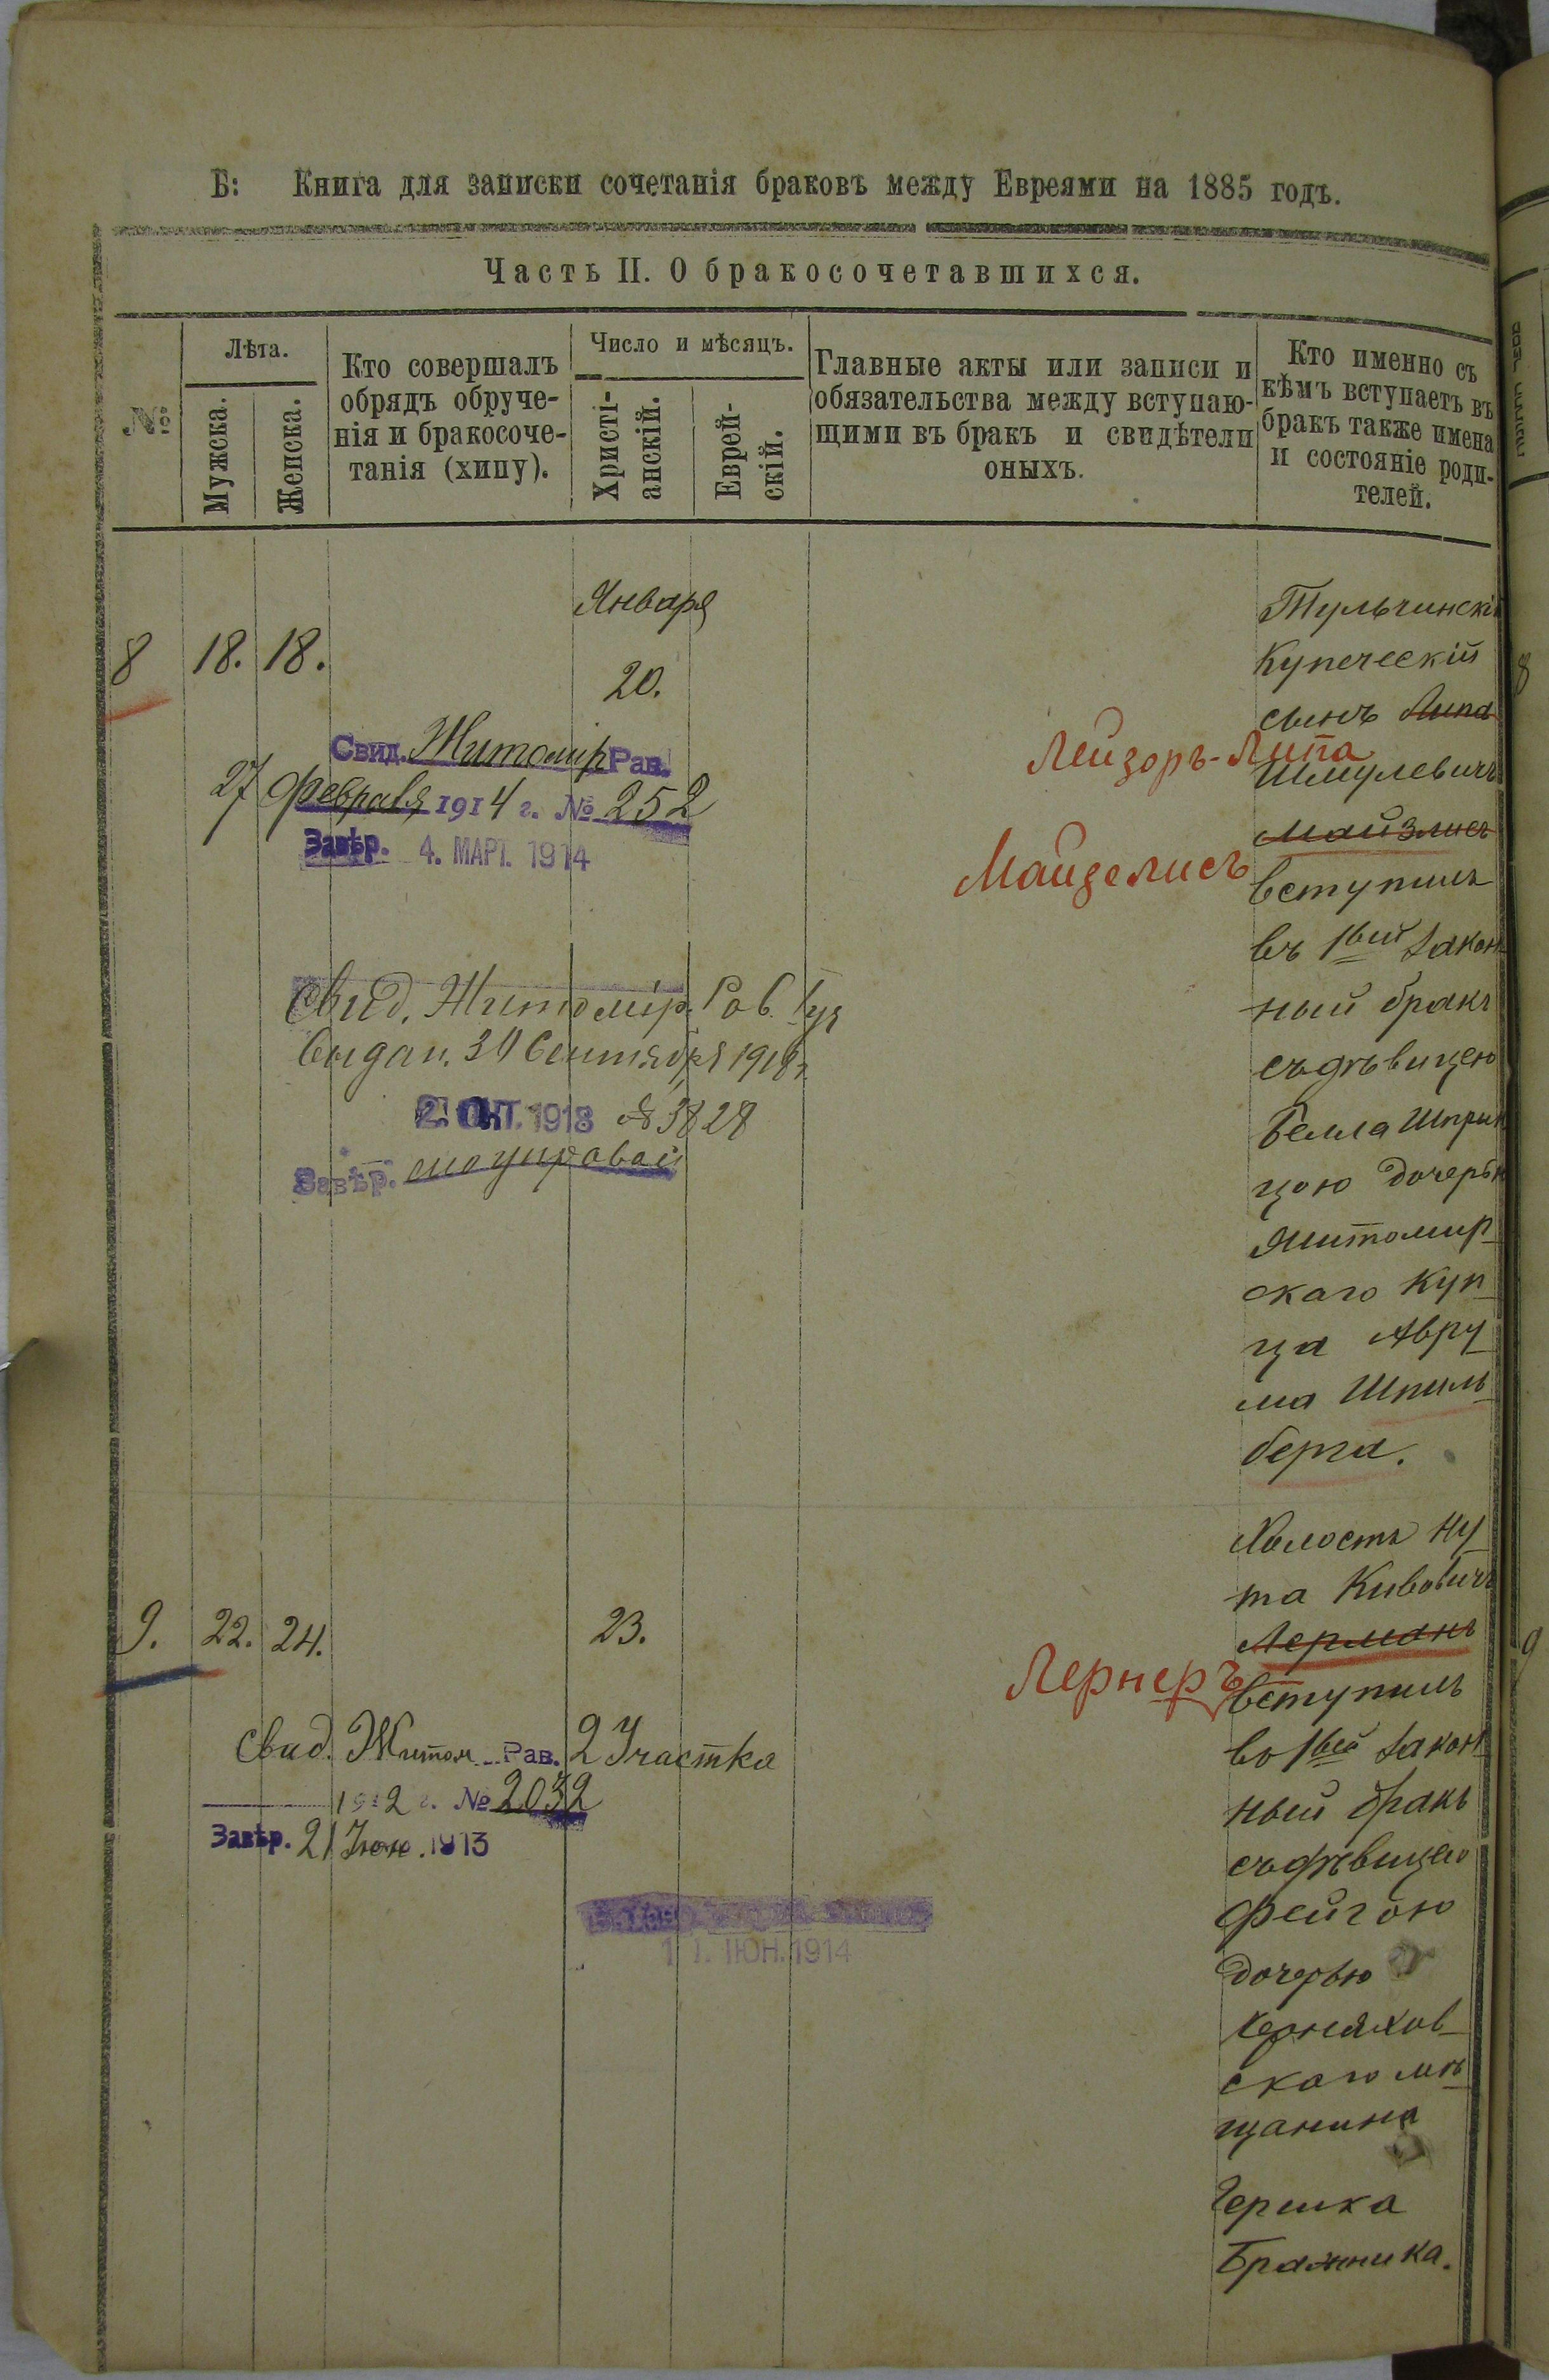 Б: Книга для записки сочетанія браковъ между Евреями на 1885 годъ.
Часть II. О бракосочетавшихся.
№
Лѣта.
Мужска.
Женска.
Кто совершалъ
обрядъ обруче-
нія и бракосоче-
танія (хипу).
Число и мѣсяцъ.
Христі-
анскій.
Еврей-
скій.
Главные акты или записи и
обязательства между вступаю-
щими въ бракъ и свидѣтели
оныхъ.
Кто именно съ
кѣмъ вступаетъ въ
бракъ также имена
и состояніе роди-
телей.
8 18. 18.
Января
20.
Свид. Житомір Рав.
27 Февраля 1914 г. № 252
Завѣр. 4. МАРТ. 1914
Свид. Житомір. Рав.
Выдан. 30 Сентября 1918 г.
2. ОКТ. 1918 № 3828
Завѣр.
Тульчинскій
Купеческій
сынъ Липа
Лейзоръ-Липа
Шмулевичъ
Майзлисъ
Майзелисъ
вступилъ
въ 1вый закон
ный бракъ
съ дѣвицею
Белла Шприн
цою дочерью
Житомир
скаго Куп
ца Авру
ма Шпиль
берга.
9. 22. 24.
23.
Свид. Житом Рав. 2 Участка
1912 г. № 2032
Завѣр. 21 Іюн. 1913
ІЮН. 1914
Холостъ Ну
та Кивовичъ
Лерманъ
Лернеръ
вступилъ
во 1вый закон
ный бракъ
съ дѣвицею
Фейгою
дочерью
Черняхов
скаго мѣ
щанина
Гершка
Бражника.
8
9